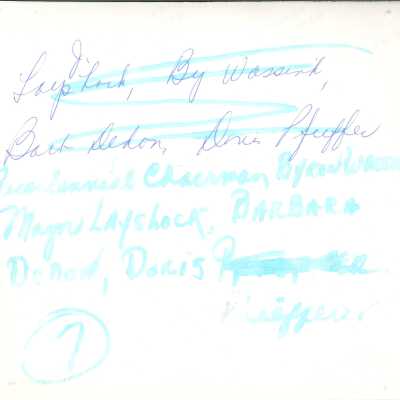 Layshock, By Wassink,
Barb DeHon, Doris Pfeiffer
Chairman Byron
Mayor Layshock, BARBARA
DeHon, DORIS
Pfeiffer
7